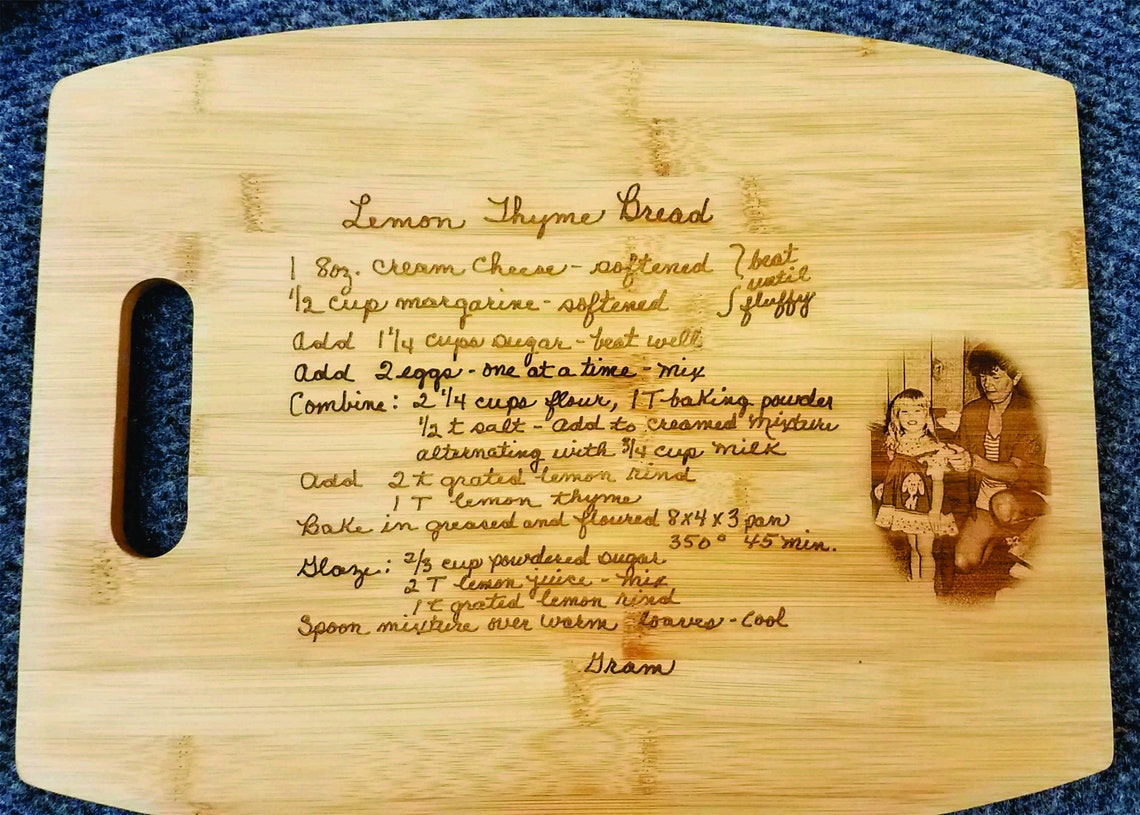 Lemon Thyme Bread
1 8oz. cream cheese - softened } beat
until
1/2 cup margarine - softened } fluffy
Add 1 1/4 cups sugar - beat well
Add 2 eggs - one at a time - mix
Combine: 2 1/4 cups flour, 1 T baking powder
1/2 t salt - add to creamed mixture
alternating with 3/4 cup milk
Add 2 t grated lemon rind
1 T lemon thyme
Bake in greased and floured 8x4x3 pan
350° 45 min.
Glaze: 2/3 cup powdered sugar
2 T lemon juice - mix
1 t grated lemon rind
Spoon mixture over warm loaves - cool
Gram